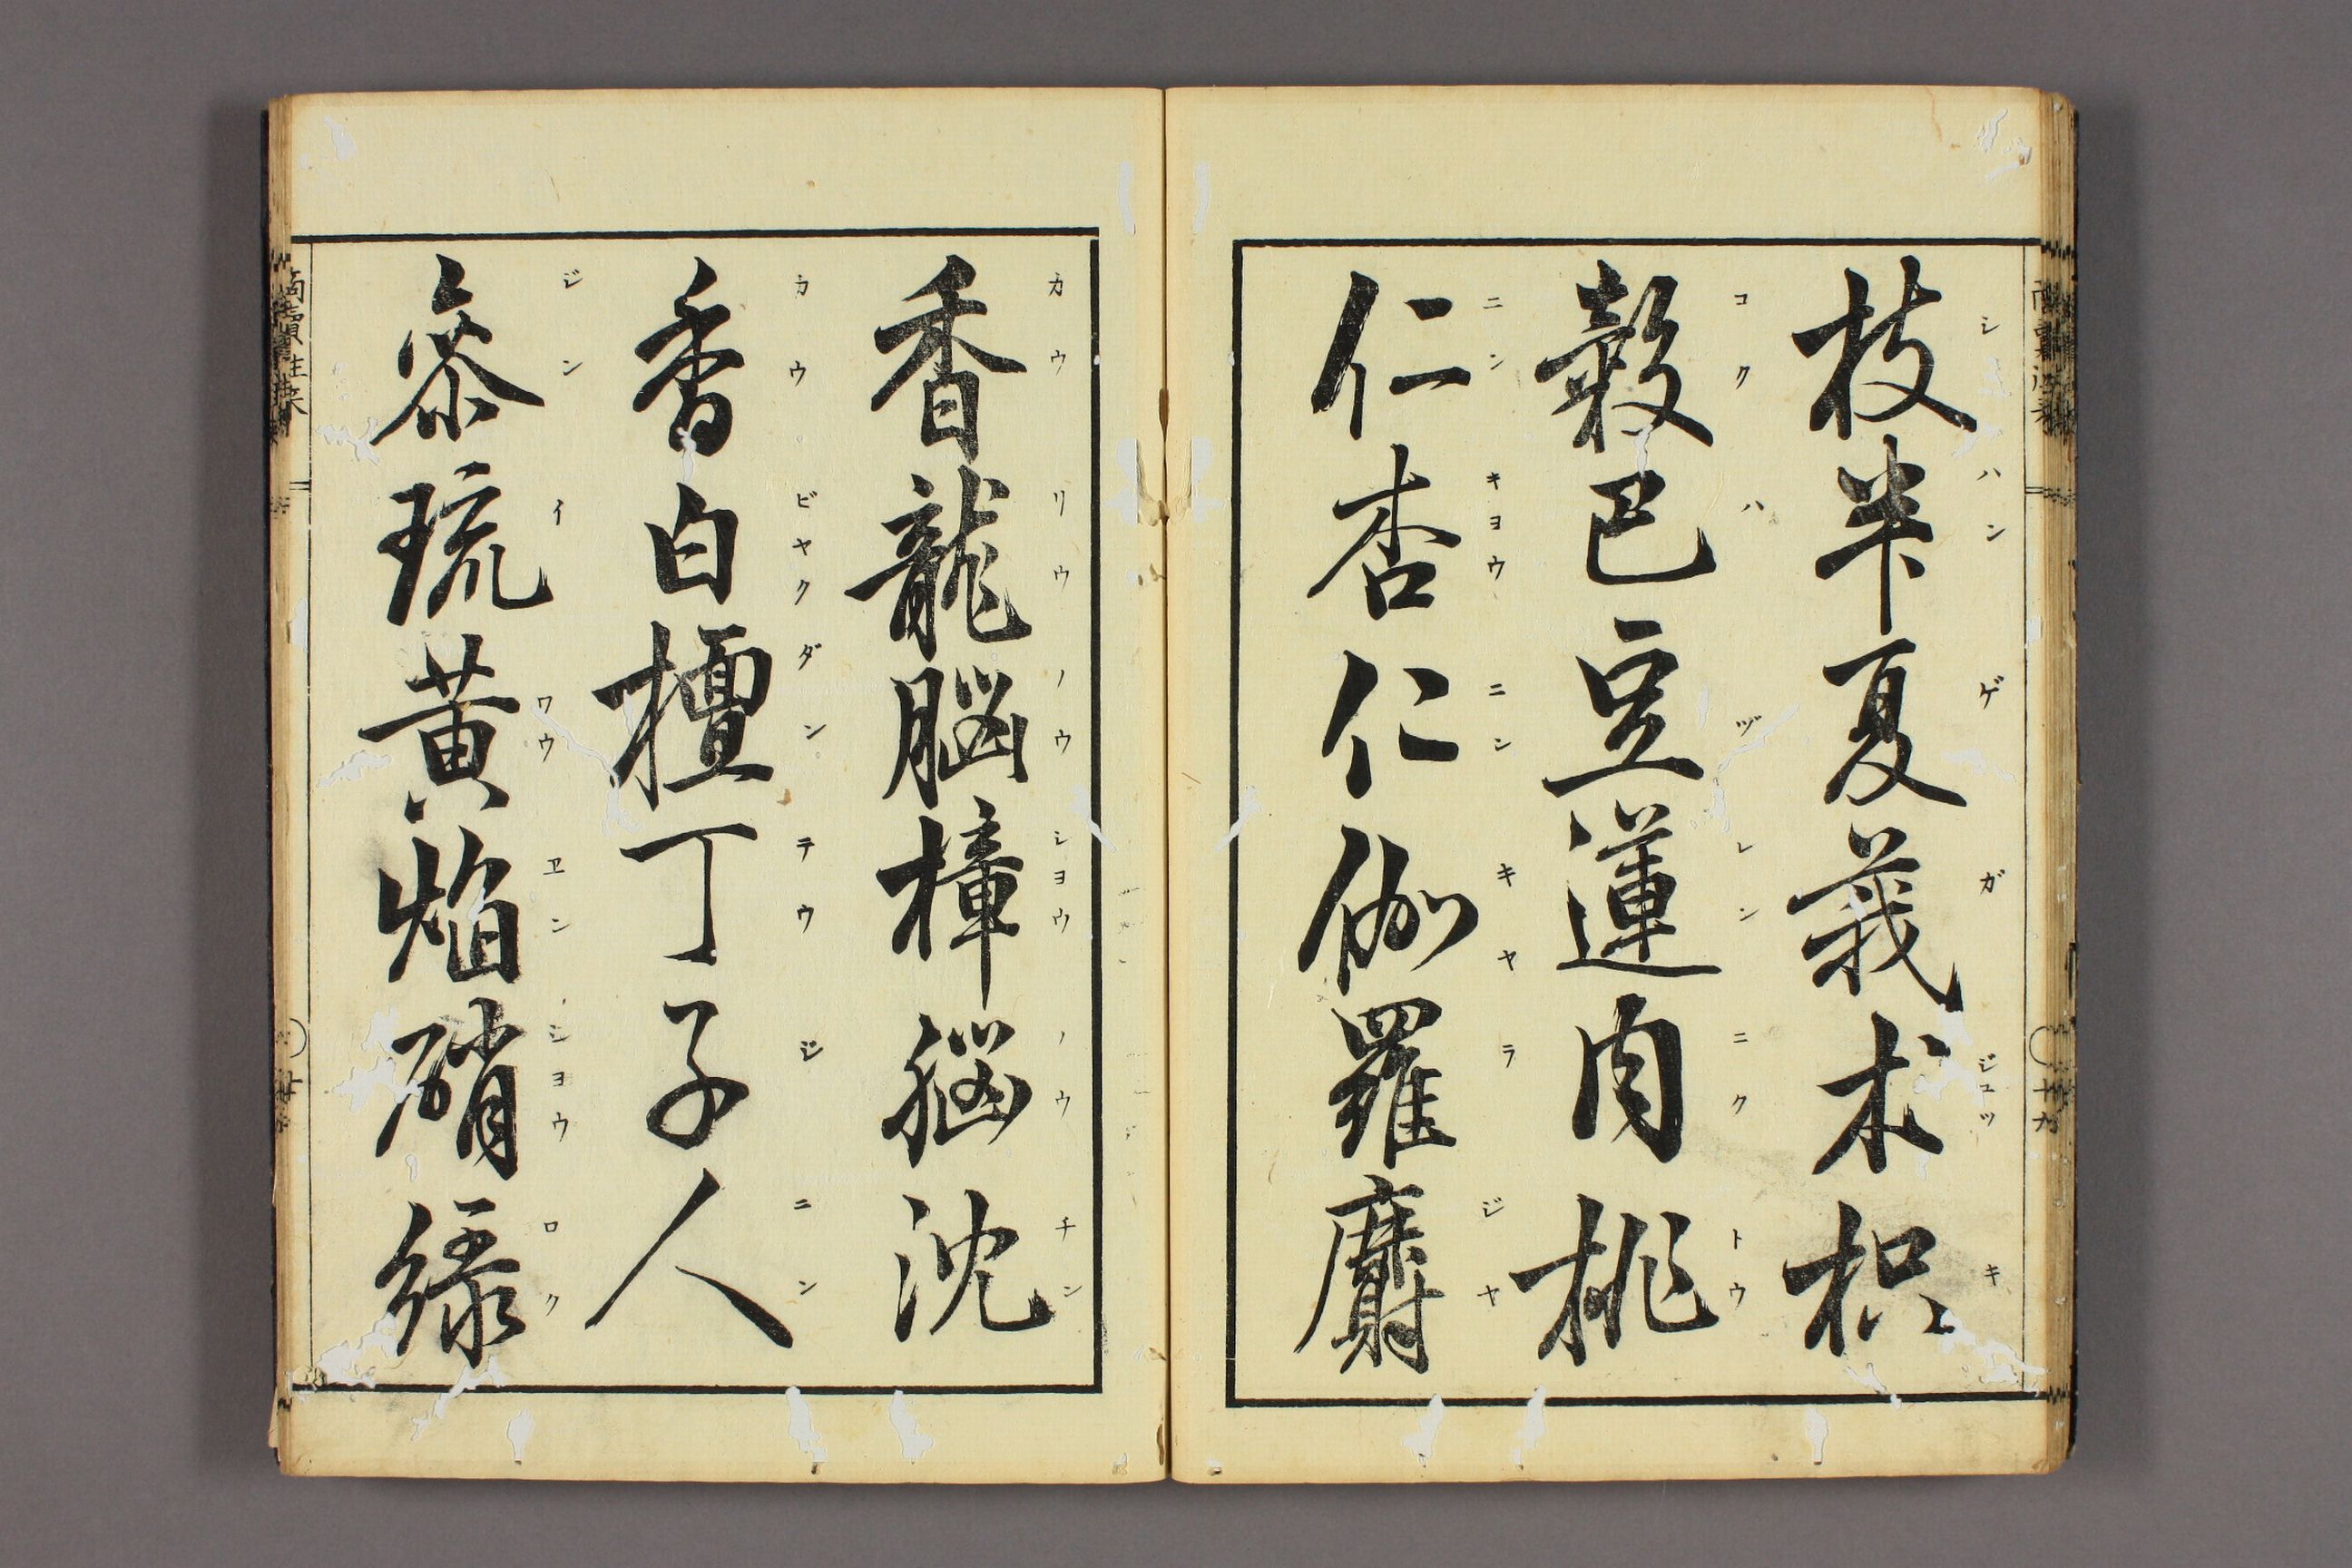 商賣往来 十九
シ ハン ゲ ガ ジュツ キ
枝半夏莪朮枳
コク ハ ヅ レン ニク トウ
穀巴豆蓮肉桃
ニン キヨウ ニン キヤ ラ ジヤ
仁杏仁伽羅麝
カウ リウ ノウ シヨウ ノウ チン
香龍脳樟脳沈
カウ ビヤク ダン テウ ジ ニン
香白檀丁子人
ジン イ ワウ ヱン シヨウ ロク
參琉黄焔硝緑
商賣往来 廿